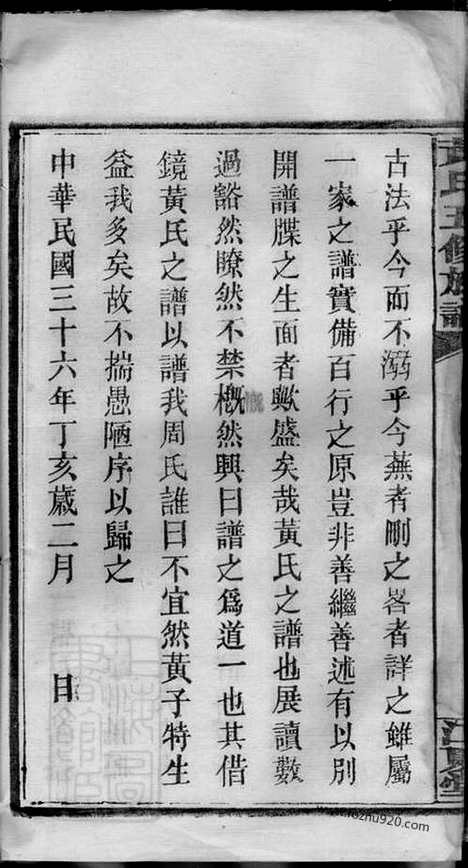 古法乎今而不溺乎今蕪者刪之畧者詳之雖屬
一家之譜實備百行之原豈非善繼善述有以別
開譜牒之生面者歟盛矣哉黃氏之譜也展讀數
過豁然瞭然不禁概然興曰譜之為道一也其借
鏡黃氏之譜以譜我周氏誰曰不宜然黃子特生
益我多矣故不揣愚陋序以歸之
中華民國三十六年丁亥歲二月　　日
黃氏五修族譜
江夏堂